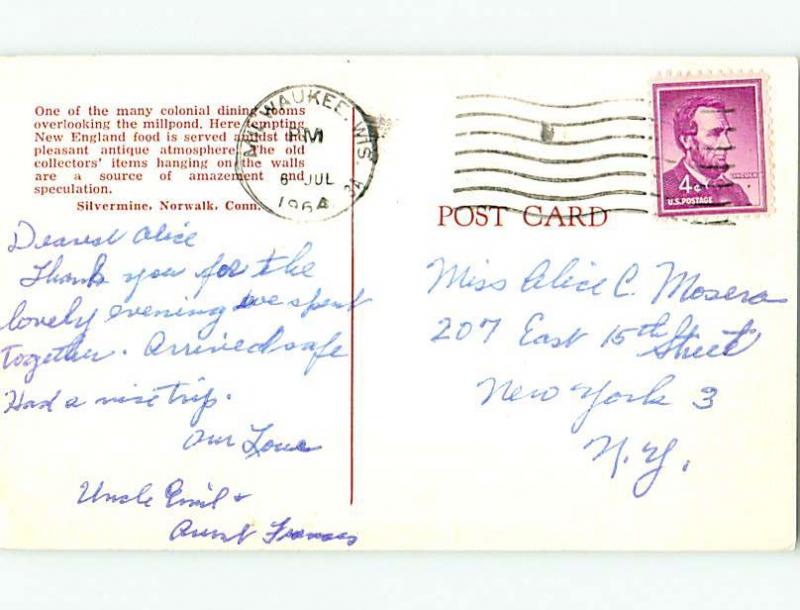 One of the many colonial dining rooms
overlooking the millpond. Here tempting
New England food is served amidst the
pleasant antique atmosphere. The old
collectors' items hanging on the walls
are a source of amazement and
speculation.
Silvermine, Norwalk, Conn.
MILWAUKEE, WIS
PM
6 JUL
1964
POST CARD
4¢
LINCOLN
U.S. POSTAGE
Dearest Alice
Thank you for the
lovely evening we spent
together. Arrived safe
Had a nice trip.
Our Love
Uncle Emil &
Aunt Frances
Miss Alice C. Mosera
207 East 15th Street
New York 3
N.Y.